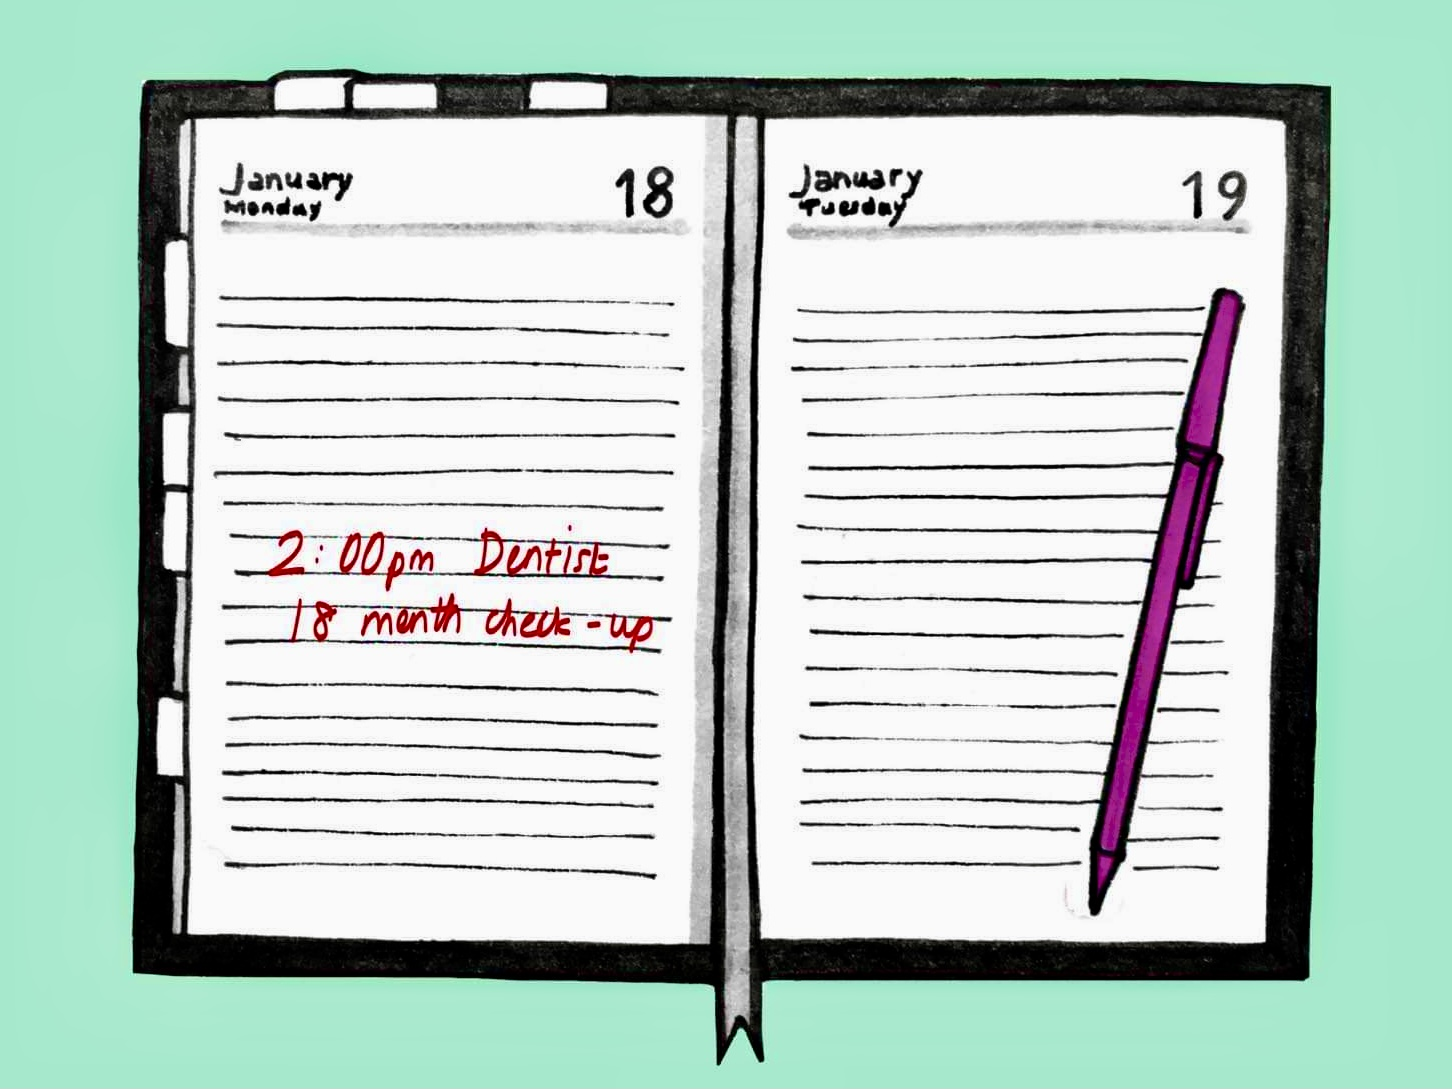 January 18
Monday
2:00pm Dentist
18 month check-up
January 19
Tuesday